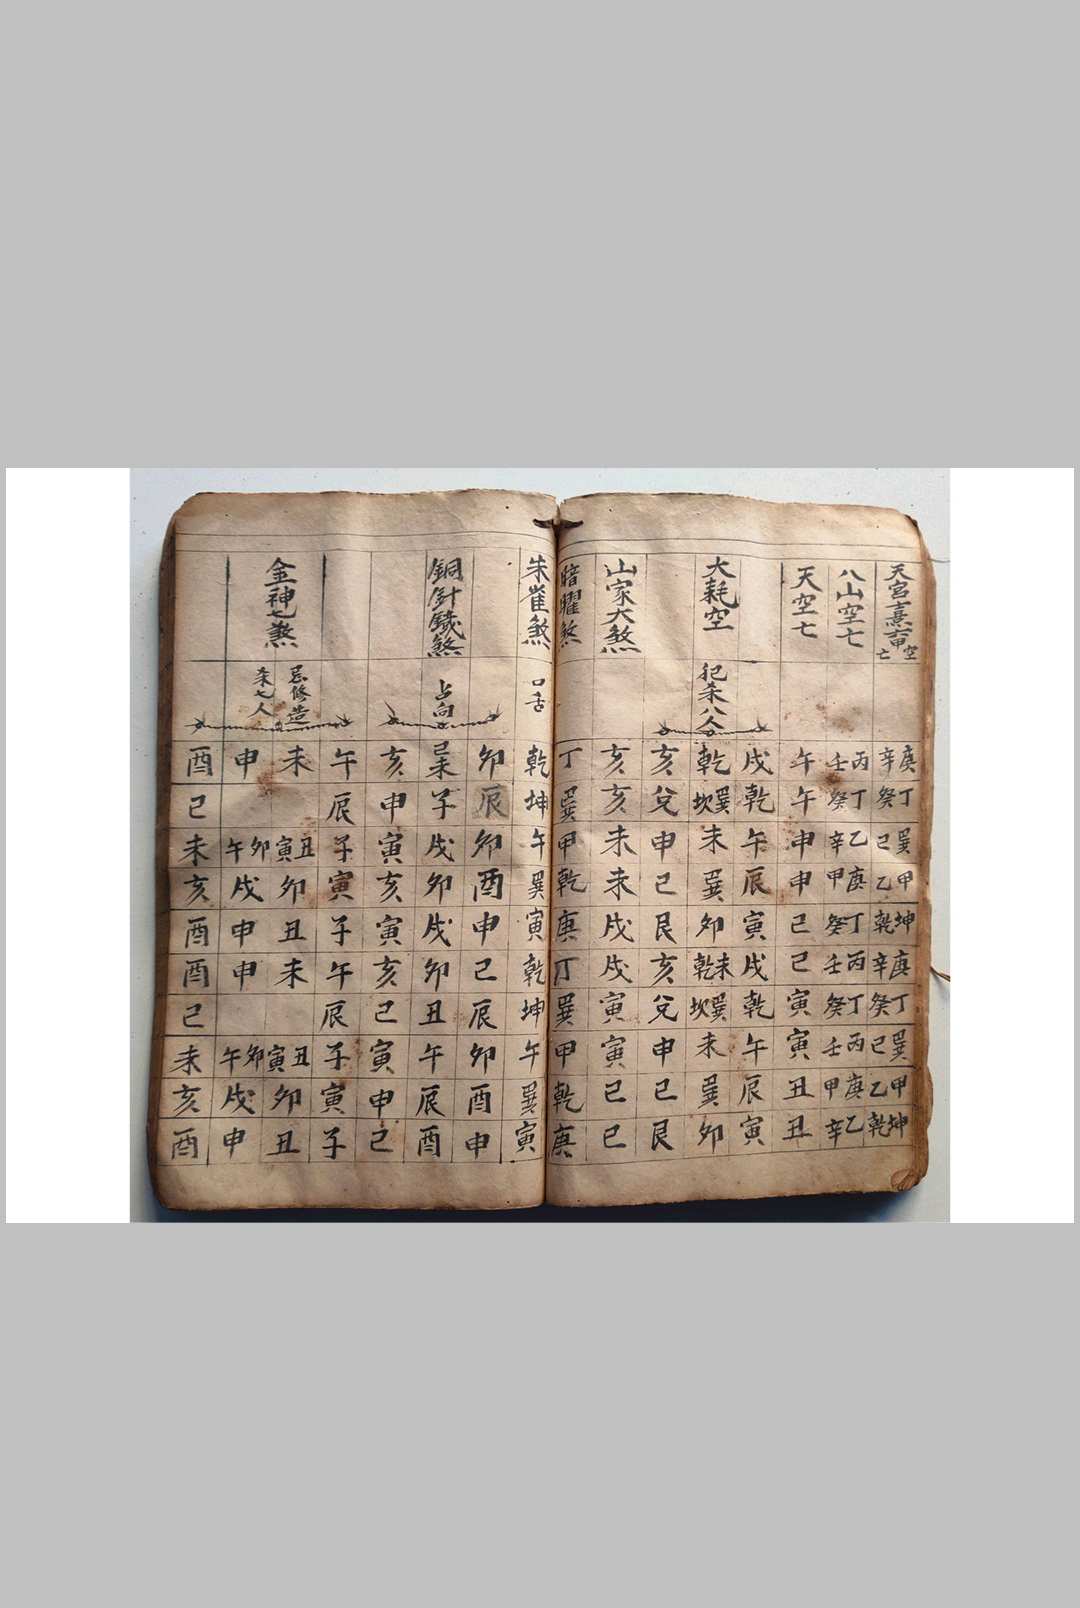 天宮 空亡
庚辛丁癸巽己甲乙坤乾庚辛丁癸巽己甲乙坤乾
八山空七
丙壬丁癸乙辛庚甲丁癸丙壬丁癸丙壬庚甲乙辛
天空七
午午申申巳巳寅寅丑丑
大耗空
犯杀八人
戌乾午辰寅戌乾午辰寅
乾巽坎未巽卯未乾巽坎未巽卯
亥兌申巳艮亥兌申巳艮
山家大煞
亥亥未未戌戌寅寅巳巳
暗曜煞
丁巽甲乾庚丁巽甲乾庚
朱崔煞
口舌
乾坤午巽寅乾坤午巽寅
銅針鐵煞
占向
卯辰卯酉申巳辰卯酉申
子戌卯戌卯丑午辰酉
亥申寅亥寅亥巳寅申巳
金神七煞
忌修造
杀七人
午辰子寅子午辰子寅子
未丑寅卯丑未丑寅卯丑
申卯午戌申申卯午戌申
酉巳未亥酉酉巳未亥酉